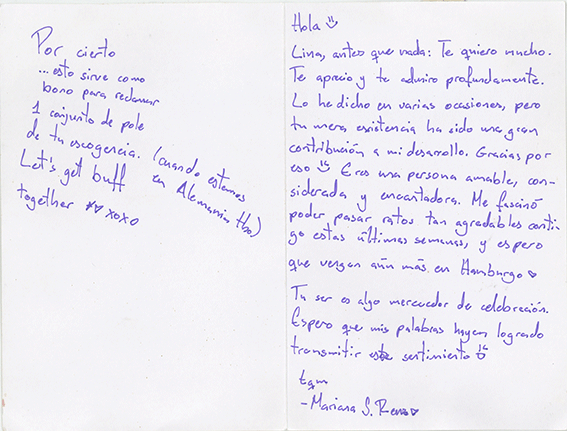 Por cierto
...esto sirve como
bono para reclamar
1 conjunto de pole
de tu escogencia. (cuando estemos
en Alemania Hbo)
Let's get buff
together ♥♥ xoxo
Hola
Lina, antes que nada: Te quiero mucho.
Te aprecio y te admiro profundamente.
Lo he dicho en varias ocasiones, pero
tu mera existencia ha sido una gran
contribución a mi desarrollo. Gracias por
eso Eres una persona amable, con-
siderada y encantadora. Me fascinó
poder pasar ratos tan agradables conti-
go estas últimas semanas, y espero
que vengan aún más en Hamburgo ♥
Tu ser es algo merecedor de celebración.
Espero que mis palabras hayan logrado
transmitir este sentimiento
tqm
-Mariana S. ♥